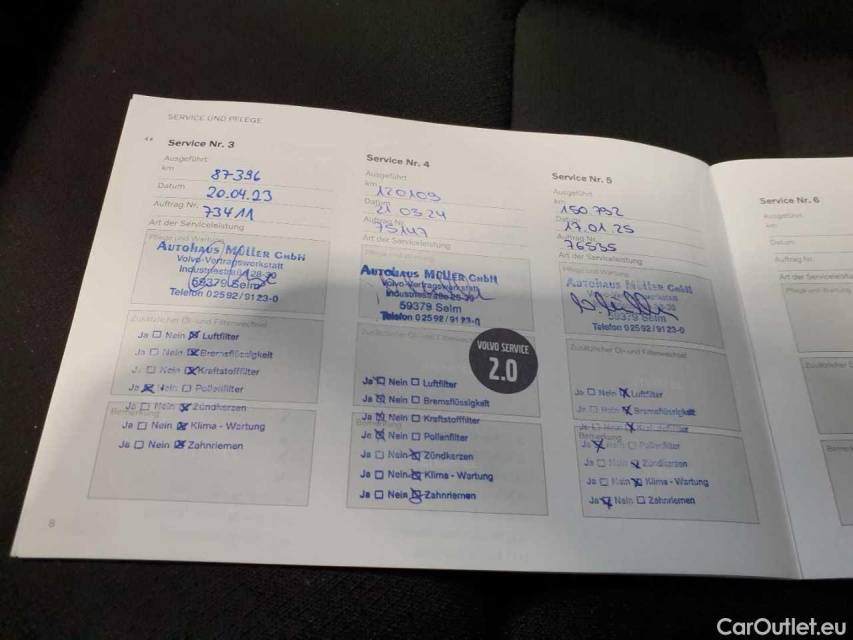 SERVICE UND PFLEGE
Service Nr. 3
Ausgeführt
km 87396
Datum 20.04.23
Auftrag Nr. 73411
Art der Serviceleistung
Pflege und Wartung
AUTOHAUS MÜLLER GMBH
Volvo-Vertragswerkstatt
Industriestraße 28-30
59379 Selm
Telefon 02592/9123-0
Zusätzlicher Öl- und Filterwechsel
Ja ☐ Nein ☒ Luftfilter
Ja ☐ Nein ☒ Bremsflüssigkeit
Ja ☐ Nein ☒ Kraftstofffilter
Ja ☒ Nein ☐ Pollenfilter
Ja ☐ Nein ☒ Zündkerzen
Bemerkung
Ja ☐ Nein ☒ Klima - Wartung
Ja ☐ Nein ☒ Zahnriemen
8
Service Nr. 4
Ausgeführt
km 120109
Datum 21 03 24
Auftrag Nr. 75147
Art der Serviceleistung
AUTOHAUS MÜLLER GMBH
Volvo-Vertragswerkstatt
Industriestraße 28-30
59379 Selm
Telefon 02592/9123-0
Zusätzlicher Öl- und Filterwechsel
VOLVO SERVICE
2.0
Ja ☒ Nein ☐ Luftfilter
Ja ☒ Nein ☐ Bremsflüssigkeit
Ja ☒ Nein ☐ Kraftstofffilter
Bemerkung
Ja ☒ Nein ☐ Pollenfilter
Ja ☐ Nein ☒ Zündkerzen
Ja ☐ Nein ☒ Klima - Wartung
Ja ☐ Nein ☒ Zahnriemen
Service Nr. 5
Ausgeführt
km 150792
Datum 17.01.25
Auftrag Nr. 76535
Art der Serviceleistung
Pflege und Wartung
AUTOHAUS MÜLLER GMBH
59379 Selm
Telefon 02592/9123-0
Zusätzlicher Öl- und Filterwechsel
Ja ☐ Nein ☒ Luftfilter
Ja ☐ Nein ☒ Bremsflüssigkeit
Ja ☐ Nein ☒ Kraftstofffilter
Bemerkung
Ja ☒ Nein ☐ Pollenfilter
Ja ☐ Nein ☒ Zündkerzen
Ja ☐ Nein ☒ Klima - Wartung
Ja ☒ Nein ☐ Zahnriemen
Service Nr. 6
Ausgeführt
km
Datum
Auftrag Nr.
Art der Serviceleistung
Pflege und Wart
Zusätzlicher Öl
CarOutlet.eu